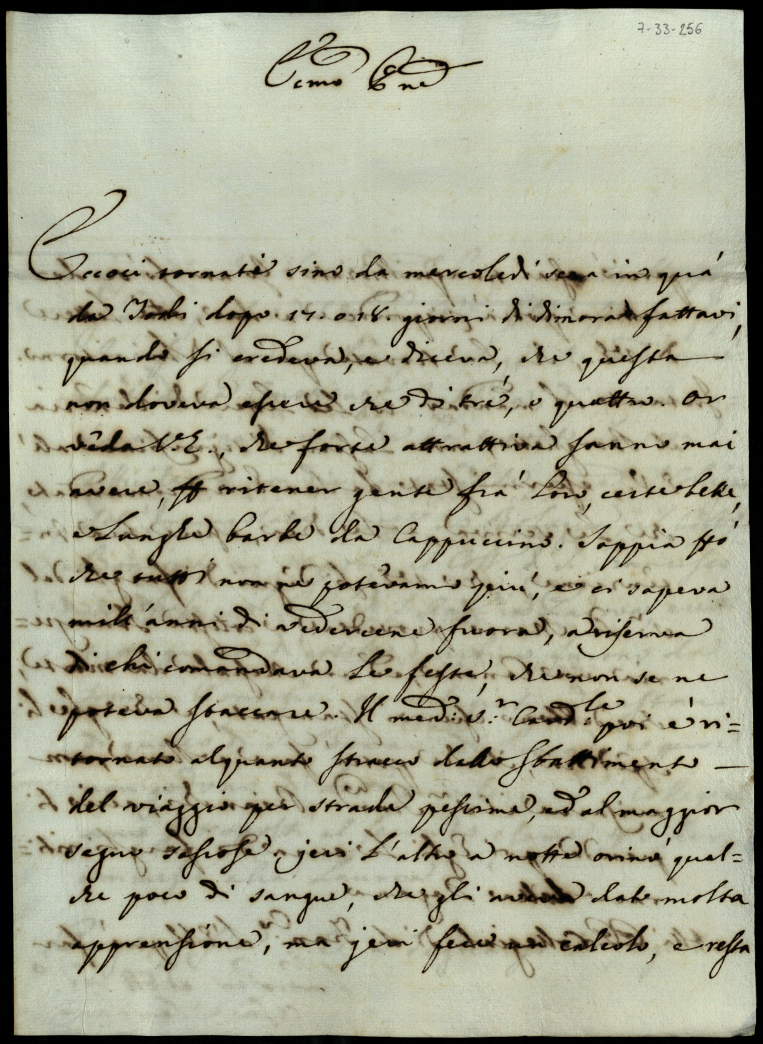 7-33-256
Ecc.mo Sig.re
Eccoci tornati sino da mercoledì sera in quà
da Todi dopo 17. o 18. giorni di dimora fattavi,
quando si credeva, e diceva, che questa
non doveva essere che di trè, o quattro. Or
veda V. E., che forte attrattiva sanno mai
avere, ꝑ ritener gente frà Loro, certe belle,
e Lunghe barbe da Cappuccino. Sappia ꝑò
che tutti non ne potevamo più, e ci sapeva
mill'anni di vedercene fuora, a riserva
di chi comandava Le feste, che non se ne
poteva staccare. Il med.º S.r Card.le poi è ri=
tornato alquanto stracco dallo sbattimento
del viaggio per strada pessima, ed al maggior
segno sassosa. jeri L'altro a notte orinò qual=
che poco di sangue, che gli aveva dato molta
apprensione, ma jeri fece un calcolo, e resta